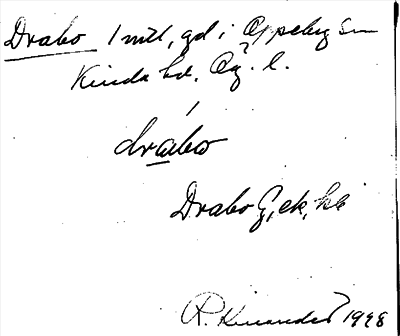 Drabo 1 mtl, gd i Oppeby sn
Kinda hd, Ög. l.
dràbo
Drabo G, ek,
R. Kinander 1928